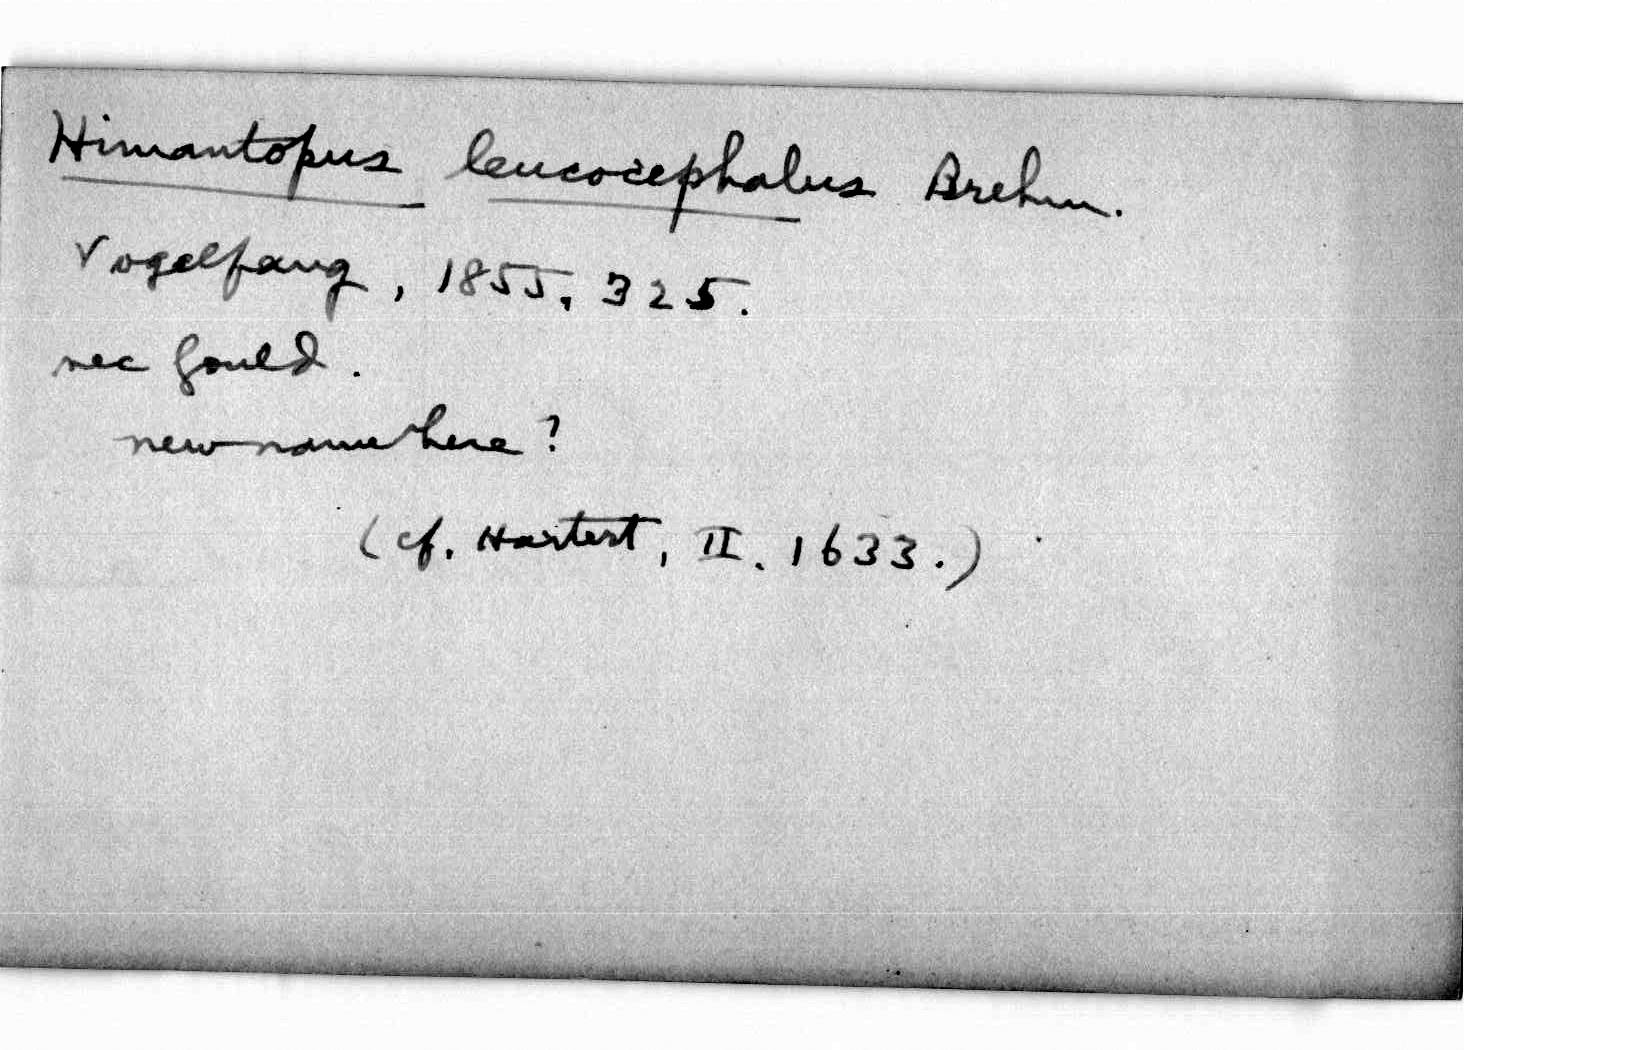 Himantopus leucocephalus Brehm.
Vogelfang, 1855, 325.
nec Gould.
new name here?
(cf. Hartert, II. 1633.)